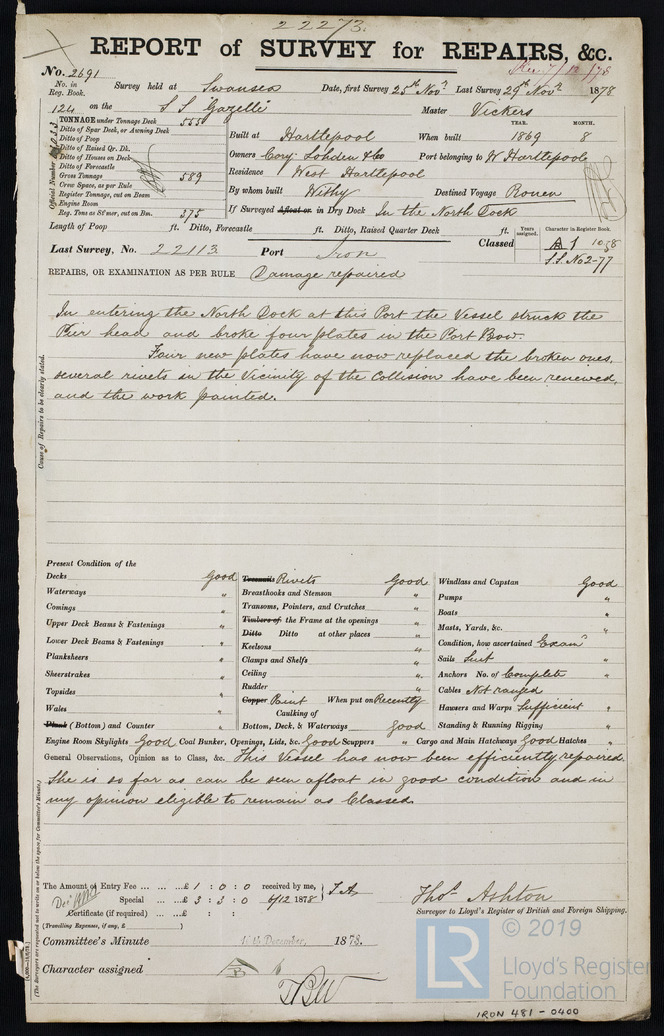 22273.
REPORT of SURVEY for REPAIRS, &c.
No. 2691
Rec. 7/12/78
No. in Reg. Book. Survey held at Swansea Date, first Survey 25th Novr Last Survey 29th Novr 1878
124 on the S S Gazelle Master Vickers
TONNAGE under Tonnage Deck 555
Ditto of Spar Deck, or Awning Deck
Ditto of Poop
Ditto of Raised Qr. Dk.
Ditto of Houses on Deck
Ditto of Forecastle
Gross Tonnage 589
Crew Space, as per Rule
Register Tonnage, cut on Beam
Engine Room
Reg. Tons as St'mer, cut on Bm. 375
Official Number
YEAR. MONTH.
Built at Hartlepool When built 1869 8
Owners Cory Lohden & Co Port belonging to W Hartlepool
Residence West Hartlepool
By whom built Withy Destined Voyage Rouen
If Surveyed Afloat or in Dry Dock In the North Dock
Length of Poop ft. Ditto, Forecastle ft. Ditto, Raised Quarter Deck ft.
Years assigned. Character in Register Book.
Last Survey, No. 22113 Port Iron Classed A 1 10.58
S.S. No 2-77
REPAIRS, OR EXAMINATION AS PER RULE Damage repaired
Cause of Repairs to be clearly stated.
In entering the North Dock at this Port the Vessel struck the
Pier head and broke four plates in the Port Bow.
Four new plates have now replaced the broken ones,
several rivets in the Vicinity of the Collision have been renewed,
and the work painted.
Present Condition of the
Decks Good
Waterways "
Comings "
Upper Deck Beams & Fastenings "
Lower Deck Beams & Fastenings "
Planksheers "
Sheerstrakes "
Topsides "
Wales "
Plank (Bottom) and Counter "
Treenails Rivets Good
Breasthooks and Stemson "
Transoms, Pointers, and Crutches "
Timbers of the Frame at the openings "
Ditto Ditto at other places "
Keelsons "
Clamps and Shelfs "
Ceiling "
Rudder "
Copper Paint When put on Recently
Caulking of
Bottom, Deck, & Waterways Good
Windlass and Capstan Good
Pumps "
Boats "
Masts, Yards, &c. "
Condition, how ascertained Examn
Sails Suit
Anchors No. of Complete
Cables Not ranged
Hawsers and Warps Sufficient
Standing & Running Rigging "
Engine Room Skylights Good Coal Bunker, Openings, Lids, &c. Good Scuppers " Cargo and Main Hatchways Good Hatches "
General Observations, Opinion as to Class, &c. This Vessel has now been efficiently repaired.
She is so far as can be seen afloat in good condition and in
my opinion eligible to remain as Classed.
(The Surveyors are requested not to write on or below the space for Committee's Minute.)
The Amount of Entry Fee ... ... ... £ 1 : 0 : 0 received by me, T.A.
Special ... ... £ 3 : 3 : 0 6/12 1878
Certificate (if required) ... £ : :
(Travelling Expenses, if any, £ )
Thos. Ashton
Surveyor to Lloyd's Register of British and Foreign Shipping.
Committee's Minute 10th December, 1878.
Character assigned
LR
© 2019
Lloyd's Register
Foundation
IRON 481-0400